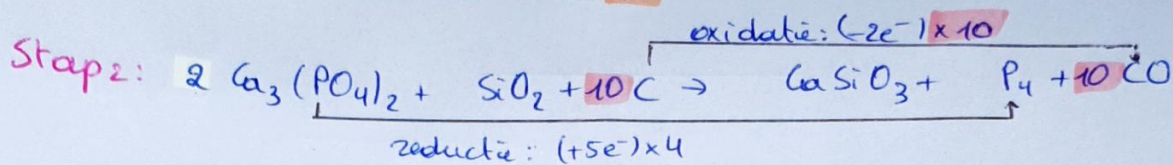 oxidatie: (-2e⁻) x 10
Stap 2: 2 Ca₃(PO₄)₂ + SiO₂ + 10 C → CaSiO₃ + P₄ + 10 CO
reductie: (+5e⁻) x 4